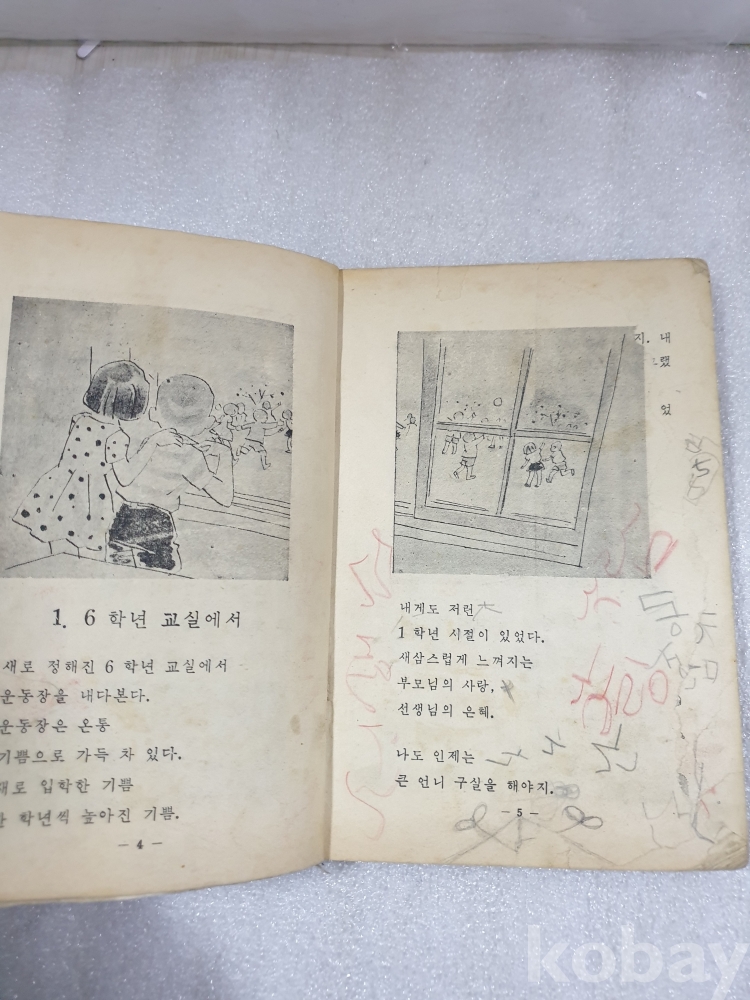 1. 6 학년 교실에서
새로 정해진 6 학년 교실에서
운동장을 내다본다.
운동장은 온통
기쁨으로 가득 차 있다.
새로 입학한 기쁨
한 학년씩 높아진 기쁨.
— 4 —
지. 내
했
었
내게도 저런
1 학년 시절이 있었다.
새삼스럽게 느껴지는
부모님의 사랑,
선생님의 은혜.
나도 인제는
큰 언니 구실을 해야지.
— 5 —
kobay